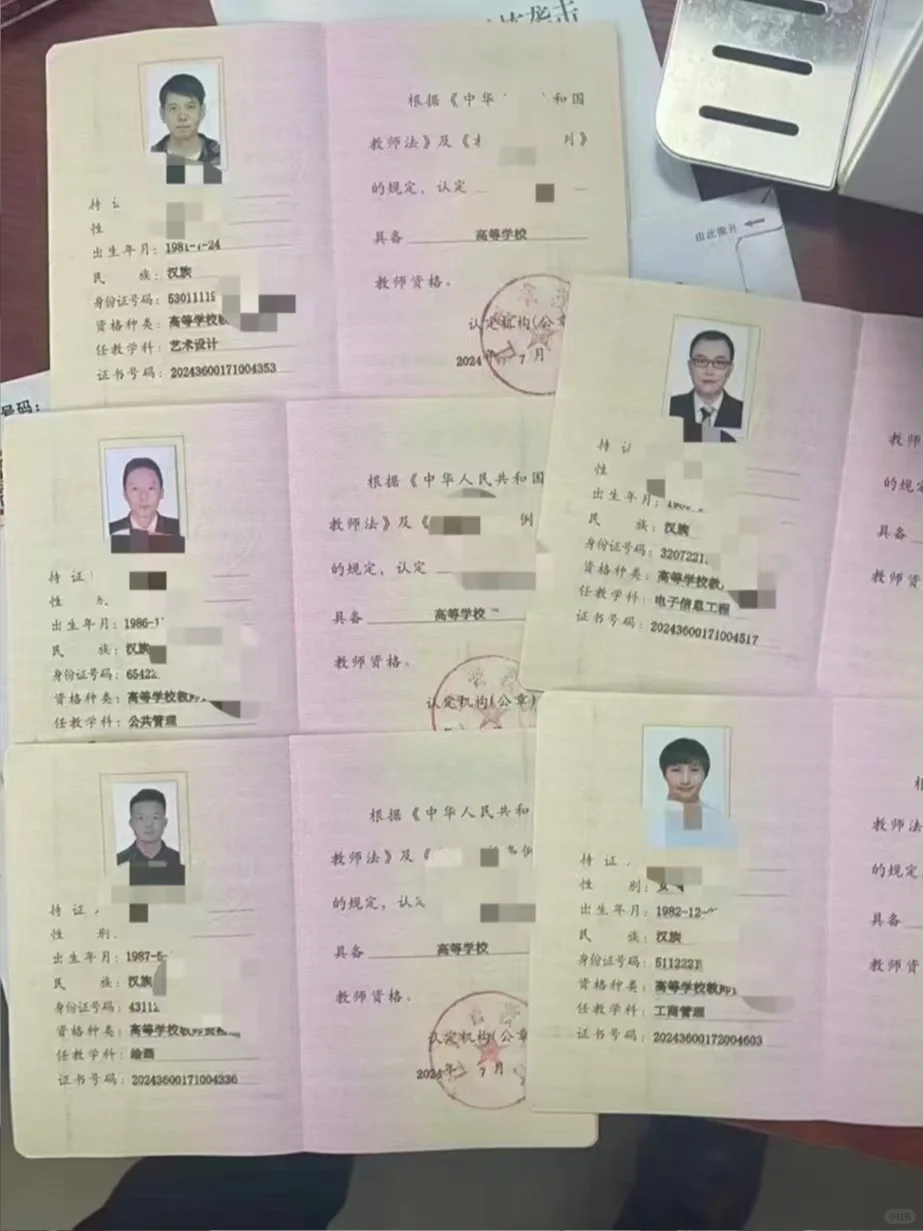 由此撕开
号码：
根据《中华
和国
教师法》及《
》
的规定，认定
具备 高等学校
教师资格。
认定机构(公章
2024年 7月
持证
性
出生年月：1981-
-24
民 族：汉族
身份证号码：5301111
资格种类：高等学校
任教学科：艺术设计
证书号码：20243600171004353
持证
性
出生年月：
民 族：汉族
身份证号码：3207221
资格种类：高等学校教
任教学科：电子信息工程
证书号码：20243600171004517
教师
的规定
具备
教师资
根据《中华人民共和国
教师法》及《
例
的规定，认定
具备 高等学校
教师资格。
认定机构(公章)
持证
性
出生年月：1986-1
民 族：汉族
身份证号码：65422
资格种类：高等学校教师
任教学科：公共管理
根据《中华人民共和
教师法》及《
的规定，认定
具备 高等学校
教师资格。
认定机构(公章
2024年 7月
持证
性别
出生年月：1987-6-
民 族：汉族
身份证号码：4311
资格种类：高等学校
任教学科：绘画
证书号码：20243600171004336
持证
性别：女
出生年月：1982-12-
民 族：汉族
身份证号码：511222
资格种类：高等学校教师
任教学科：工商管理
证书号码：20243600172004603
根
教师法
的规定
具备
教师资
小红书